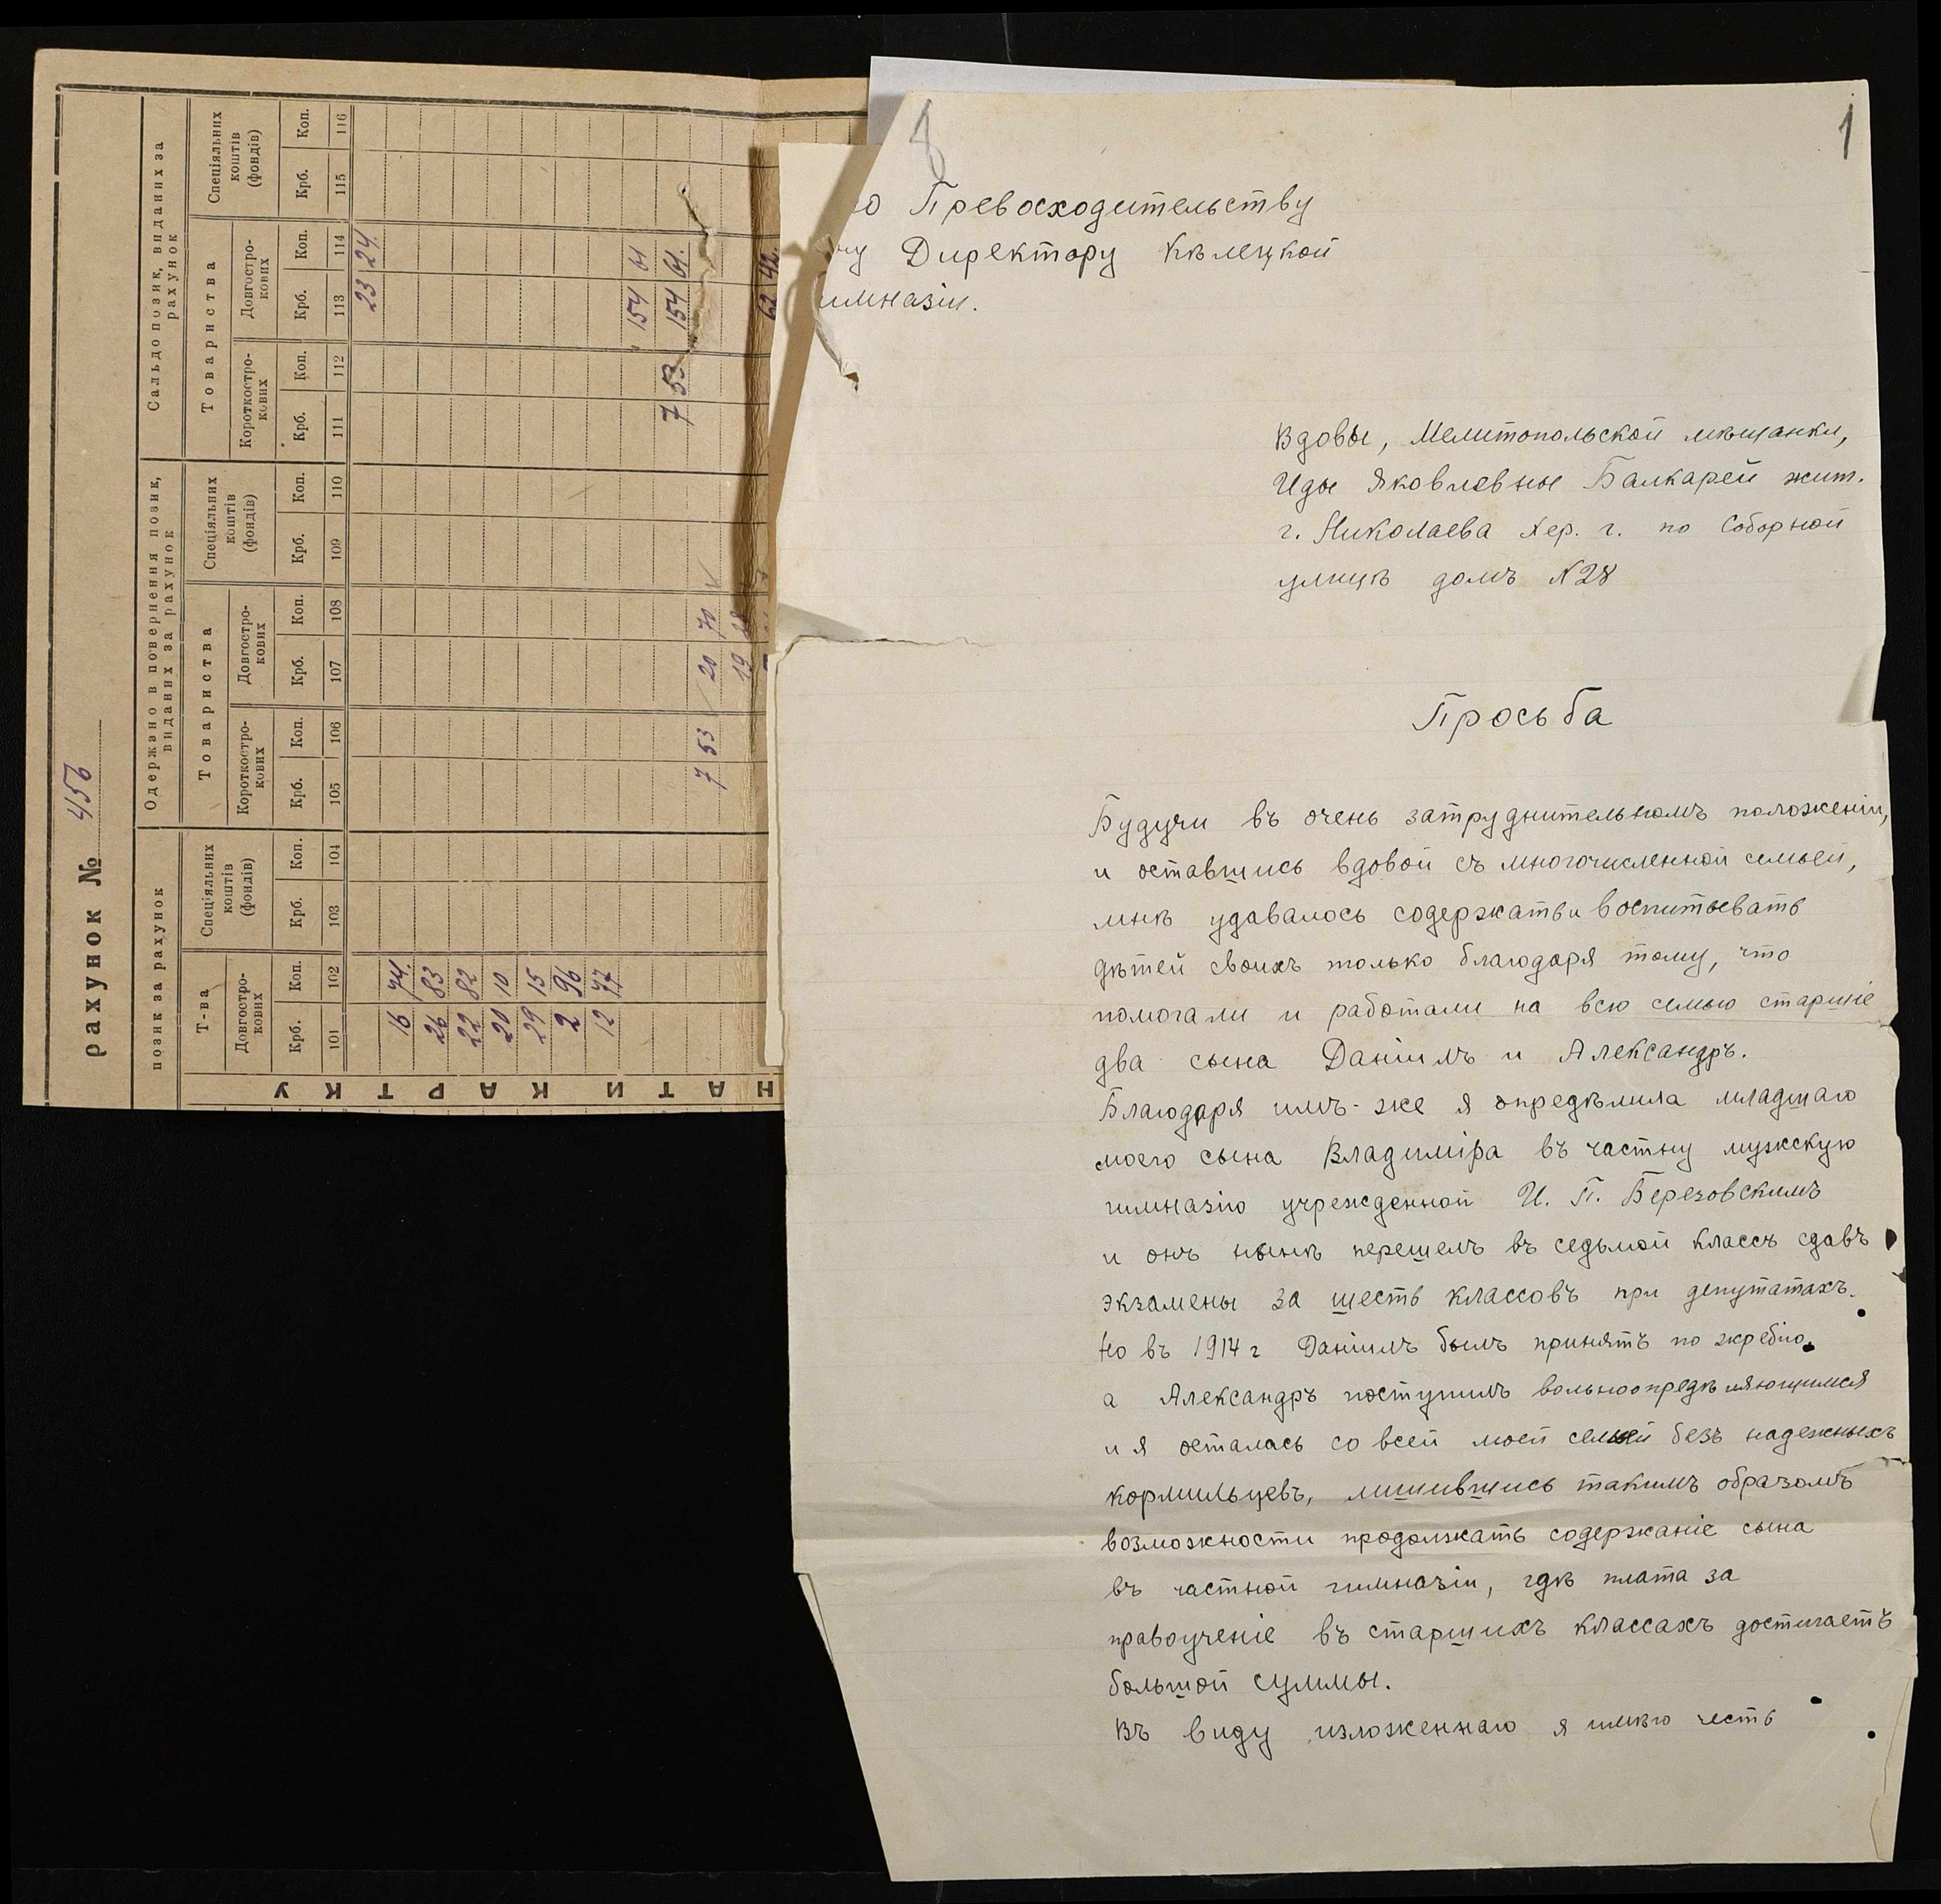 рахунок № 456
позик за рахунок
Одержано в повернення позик, виданих за рахунок
Сальдо позик, виданих за рахунок
Т-ва
Спеціяльних коштів (фондів)
Товариства
Спеціяльних коштів (фондів)
Товариства
Спеціяльних коштів (фондів)
Довгостро-кових
Короткостро-кових
Довгостро-кових
Короткостро-кових
Довгостро-кових
Крб. Коп. Крб. Коп. Крб. Коп. Крб. Коп. Крб. Коп. Крб. Коп. Крб. Коп. Крб. Коп.
101 102 103 104 105 106 107 108 109 110 111 112 113 114 115 116
23 24
16 74
26 83
22 82
20 10
29 15
2 96
12 77
154 61
7 53 154 61
7 53 20 70
19 28
62 42
НАТИ КАРТКУ
8
1
го Превосходительству
ну Директору Кѣлецкой
имназіи.
Вдовы, Мелитопольской мѣщанки,
Иды Яковлевны Балкарей жит.
г. Николаева Хер. г. по Соборной
улицѣ домъ №28
Просьба
Будучи въ очень затруднительномъ положеніи,
и оставшись вдовой съ многочисленной семьей,
мнѣ удавалось содержать и воспитывать
дѣтей своихъ только благодаря тому, что
помогали и работали на всю семью старшіе
два сына Даніилъ и Александръ.
Благодаря имъ-же я опредѣлила младшаго
моего сына Владиміра въ частну мужскую
гимназію учрежденной И. П. Березовскимъ
и онъ нынѣ перешелъ въ седьмой классъ сдавъ
экзамены за шесть классовъ при депутатахъ.
Но въ 1914 г Даніилъ былъ принятъ по жребію,
а Александръ поступилъ вольноопредѣляющимся
и я осталась со всей моей семьей безъ надежныхъ
кормильцевъ, лишившись такимъ образомъ
возможности продолжать содержаніе сына
въ частной гимназіи, гдѣ плата за
правоученіе въ старшихъ классахъ достигаетъ
большой суммы.
Въ виду изложеннаго я имѣю честь